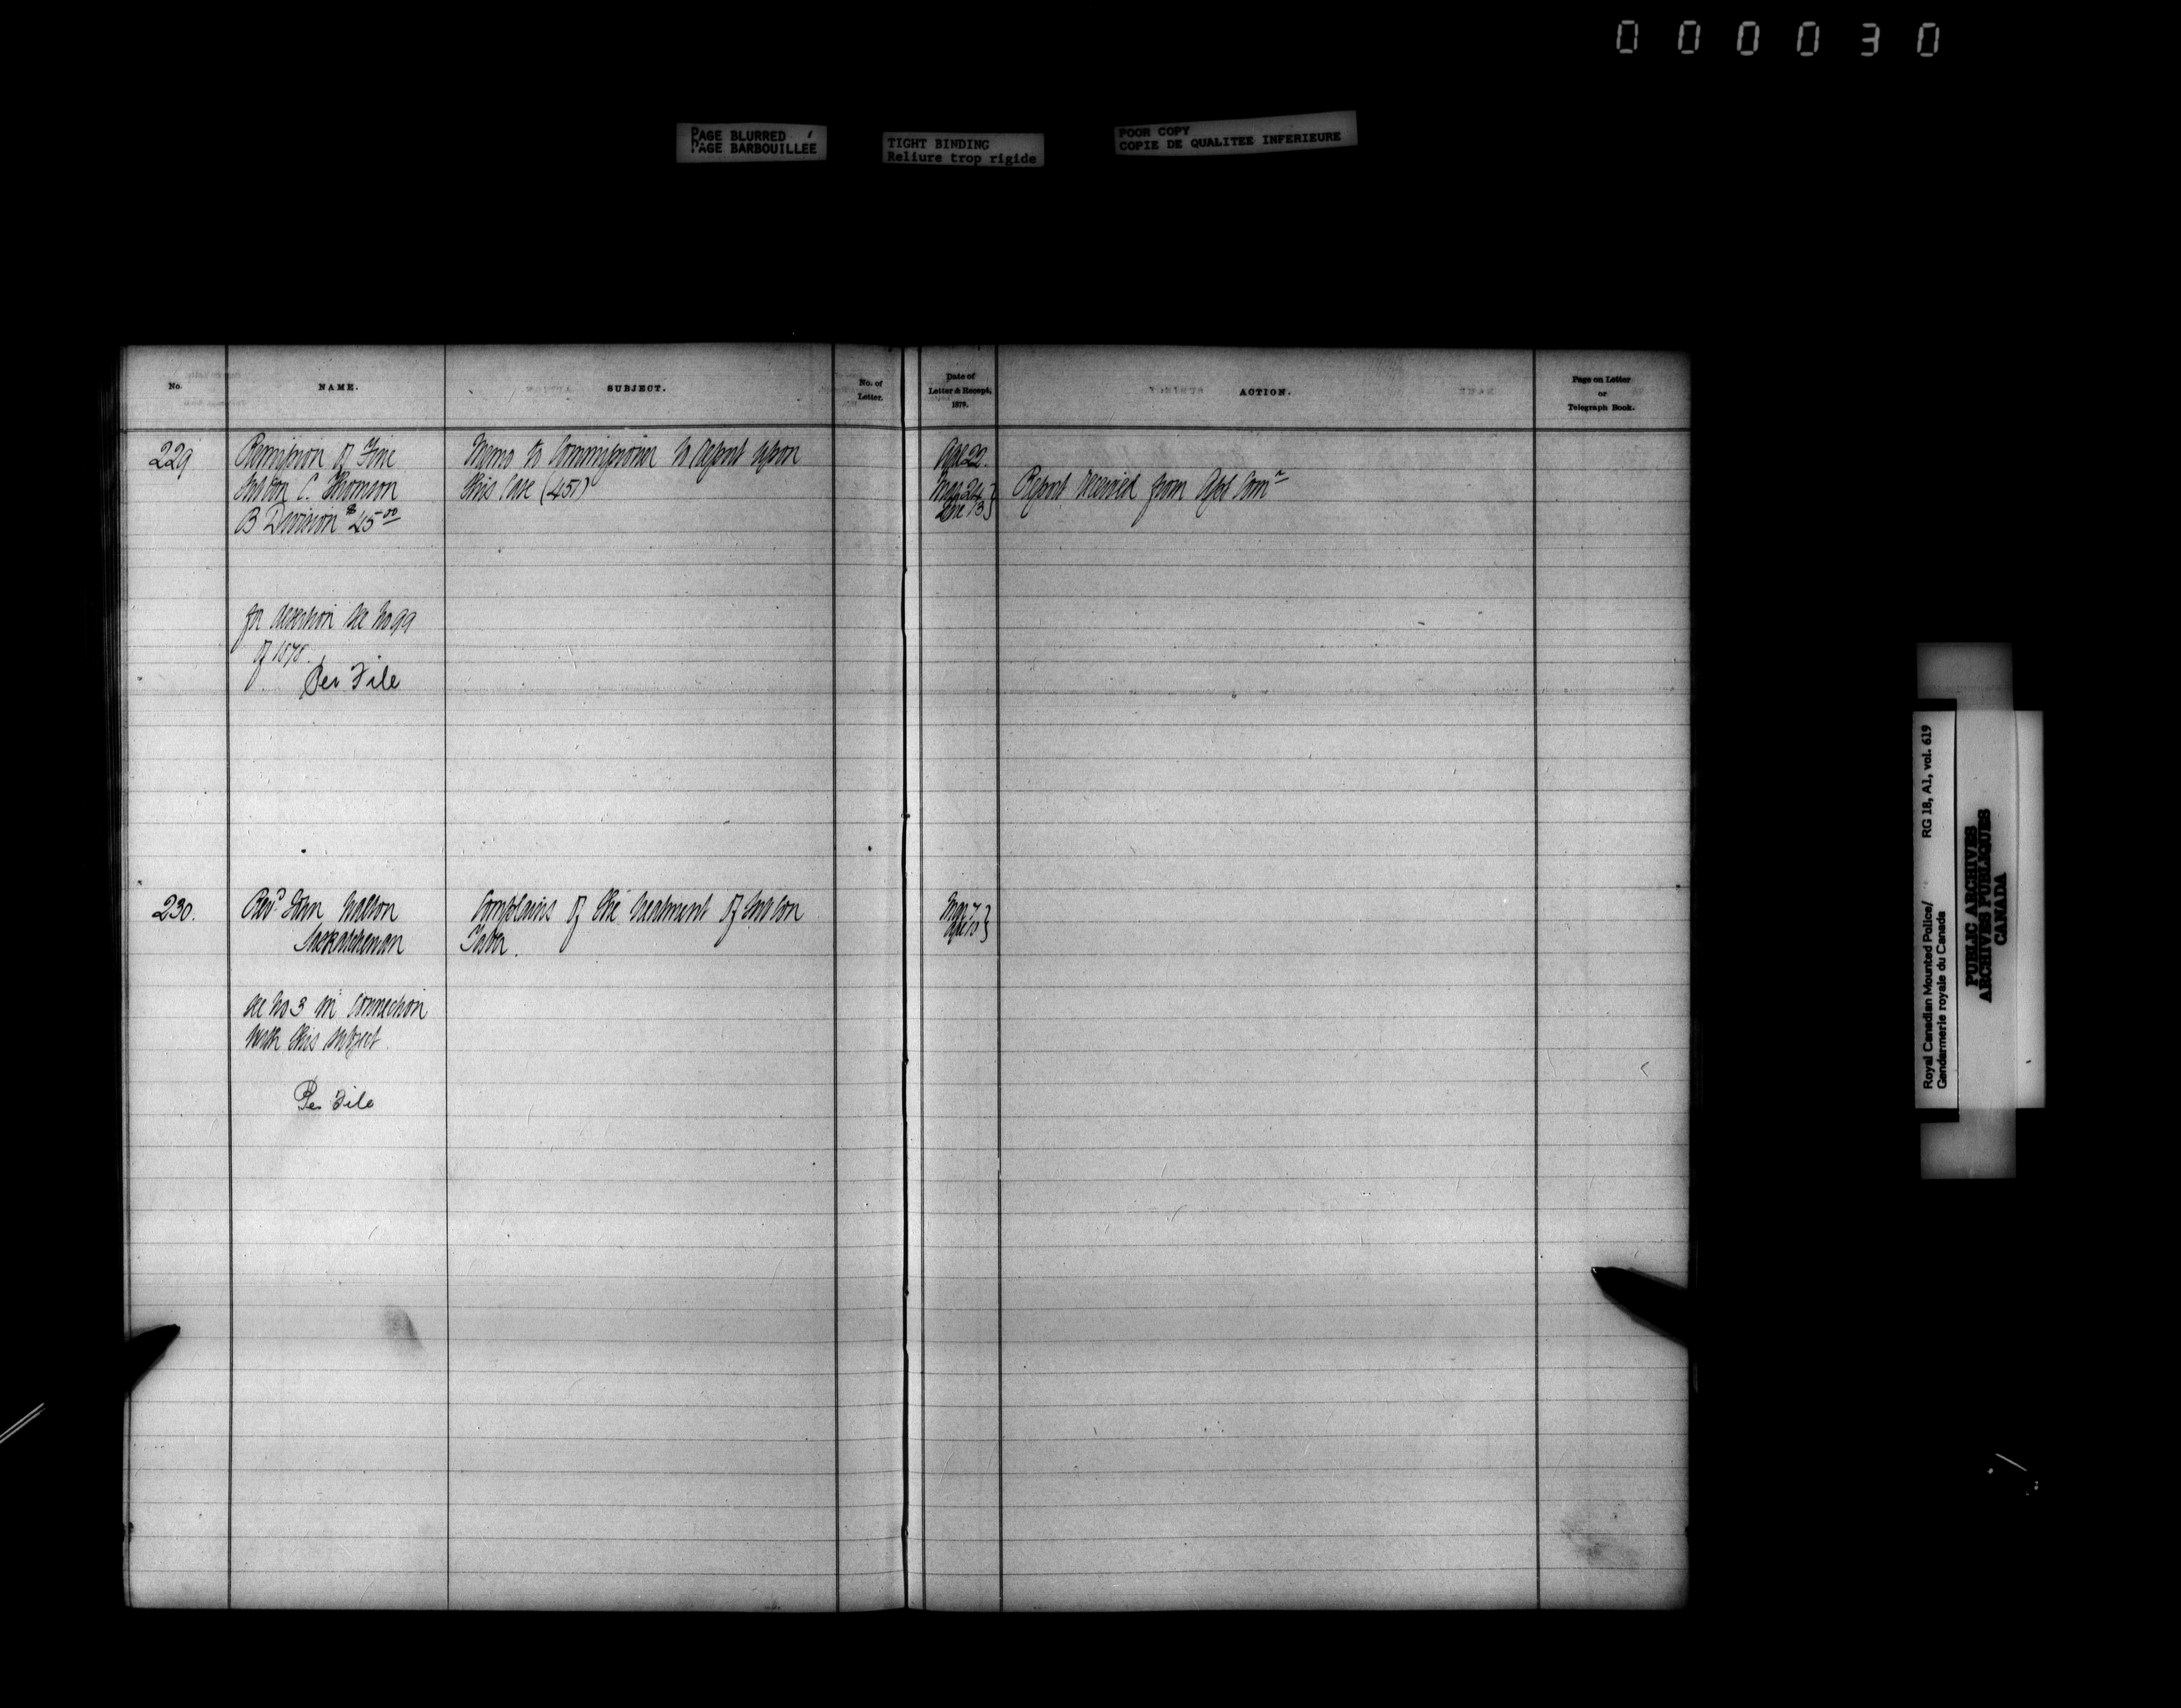 000030
PAGE BLURRED
PAGE BARBOUILLEE
TIGHT BINDING
Reliure trop rigide
POOR COPY
COPIE DE QUALITEE INFERIEURE
No.
NAME.
SUBJECT.
No. of
Letter.
Date of
Letter & Receipt,
1879.
ACTION.
Page on Letter
or
Telegraph Book.
229 Remission of Fine Memo to Commissioner to report upon Apl 22.
C. Thomson this case (451) Report received from Com
B Division $45.00
for desertion see No 99
of 1878.
Per File
230. Revd John Complains of the treatment of
Saskatchewan
see No 3 in connection
with this subject.
Per File
Royal Canadian Mounted Police/ RG 18, A1, vol. 619
Gendarmerie royale du Canada
PUBLIC ARCHIVES
ARCHIVES PUBLIQUES
CANADA